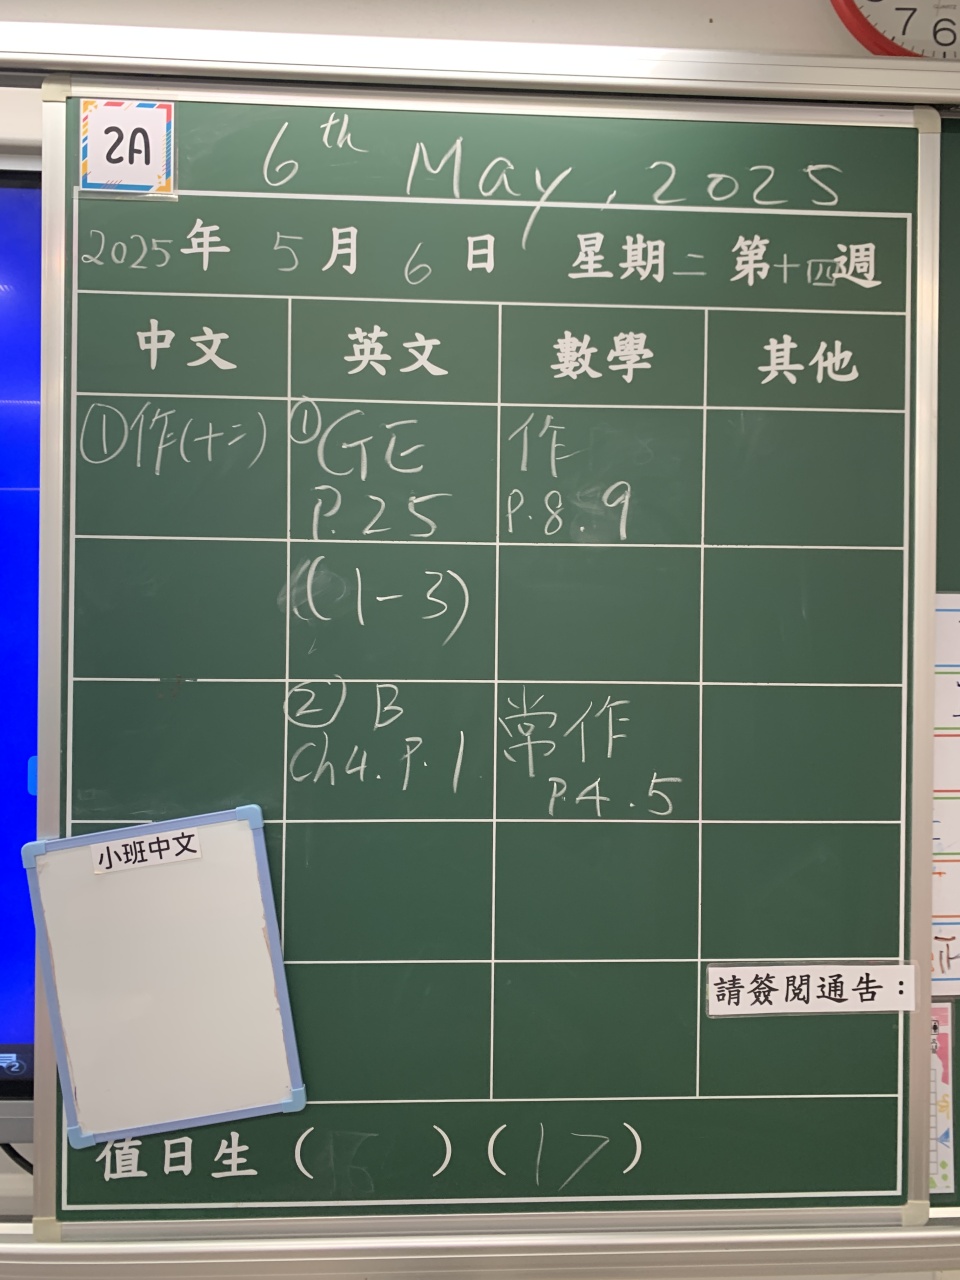 7 6
2A
6th May, 2025
2025年 5月 6日 星期二 第十四週
中文 英文 數學 其他
①作(十二) ①GE 作
P.25 P.8.9
(1-3)
② B 常作
Ch4.P.1 P.4.5
小班中文
請簽閱通告：
值日生 ( ) (17)
2